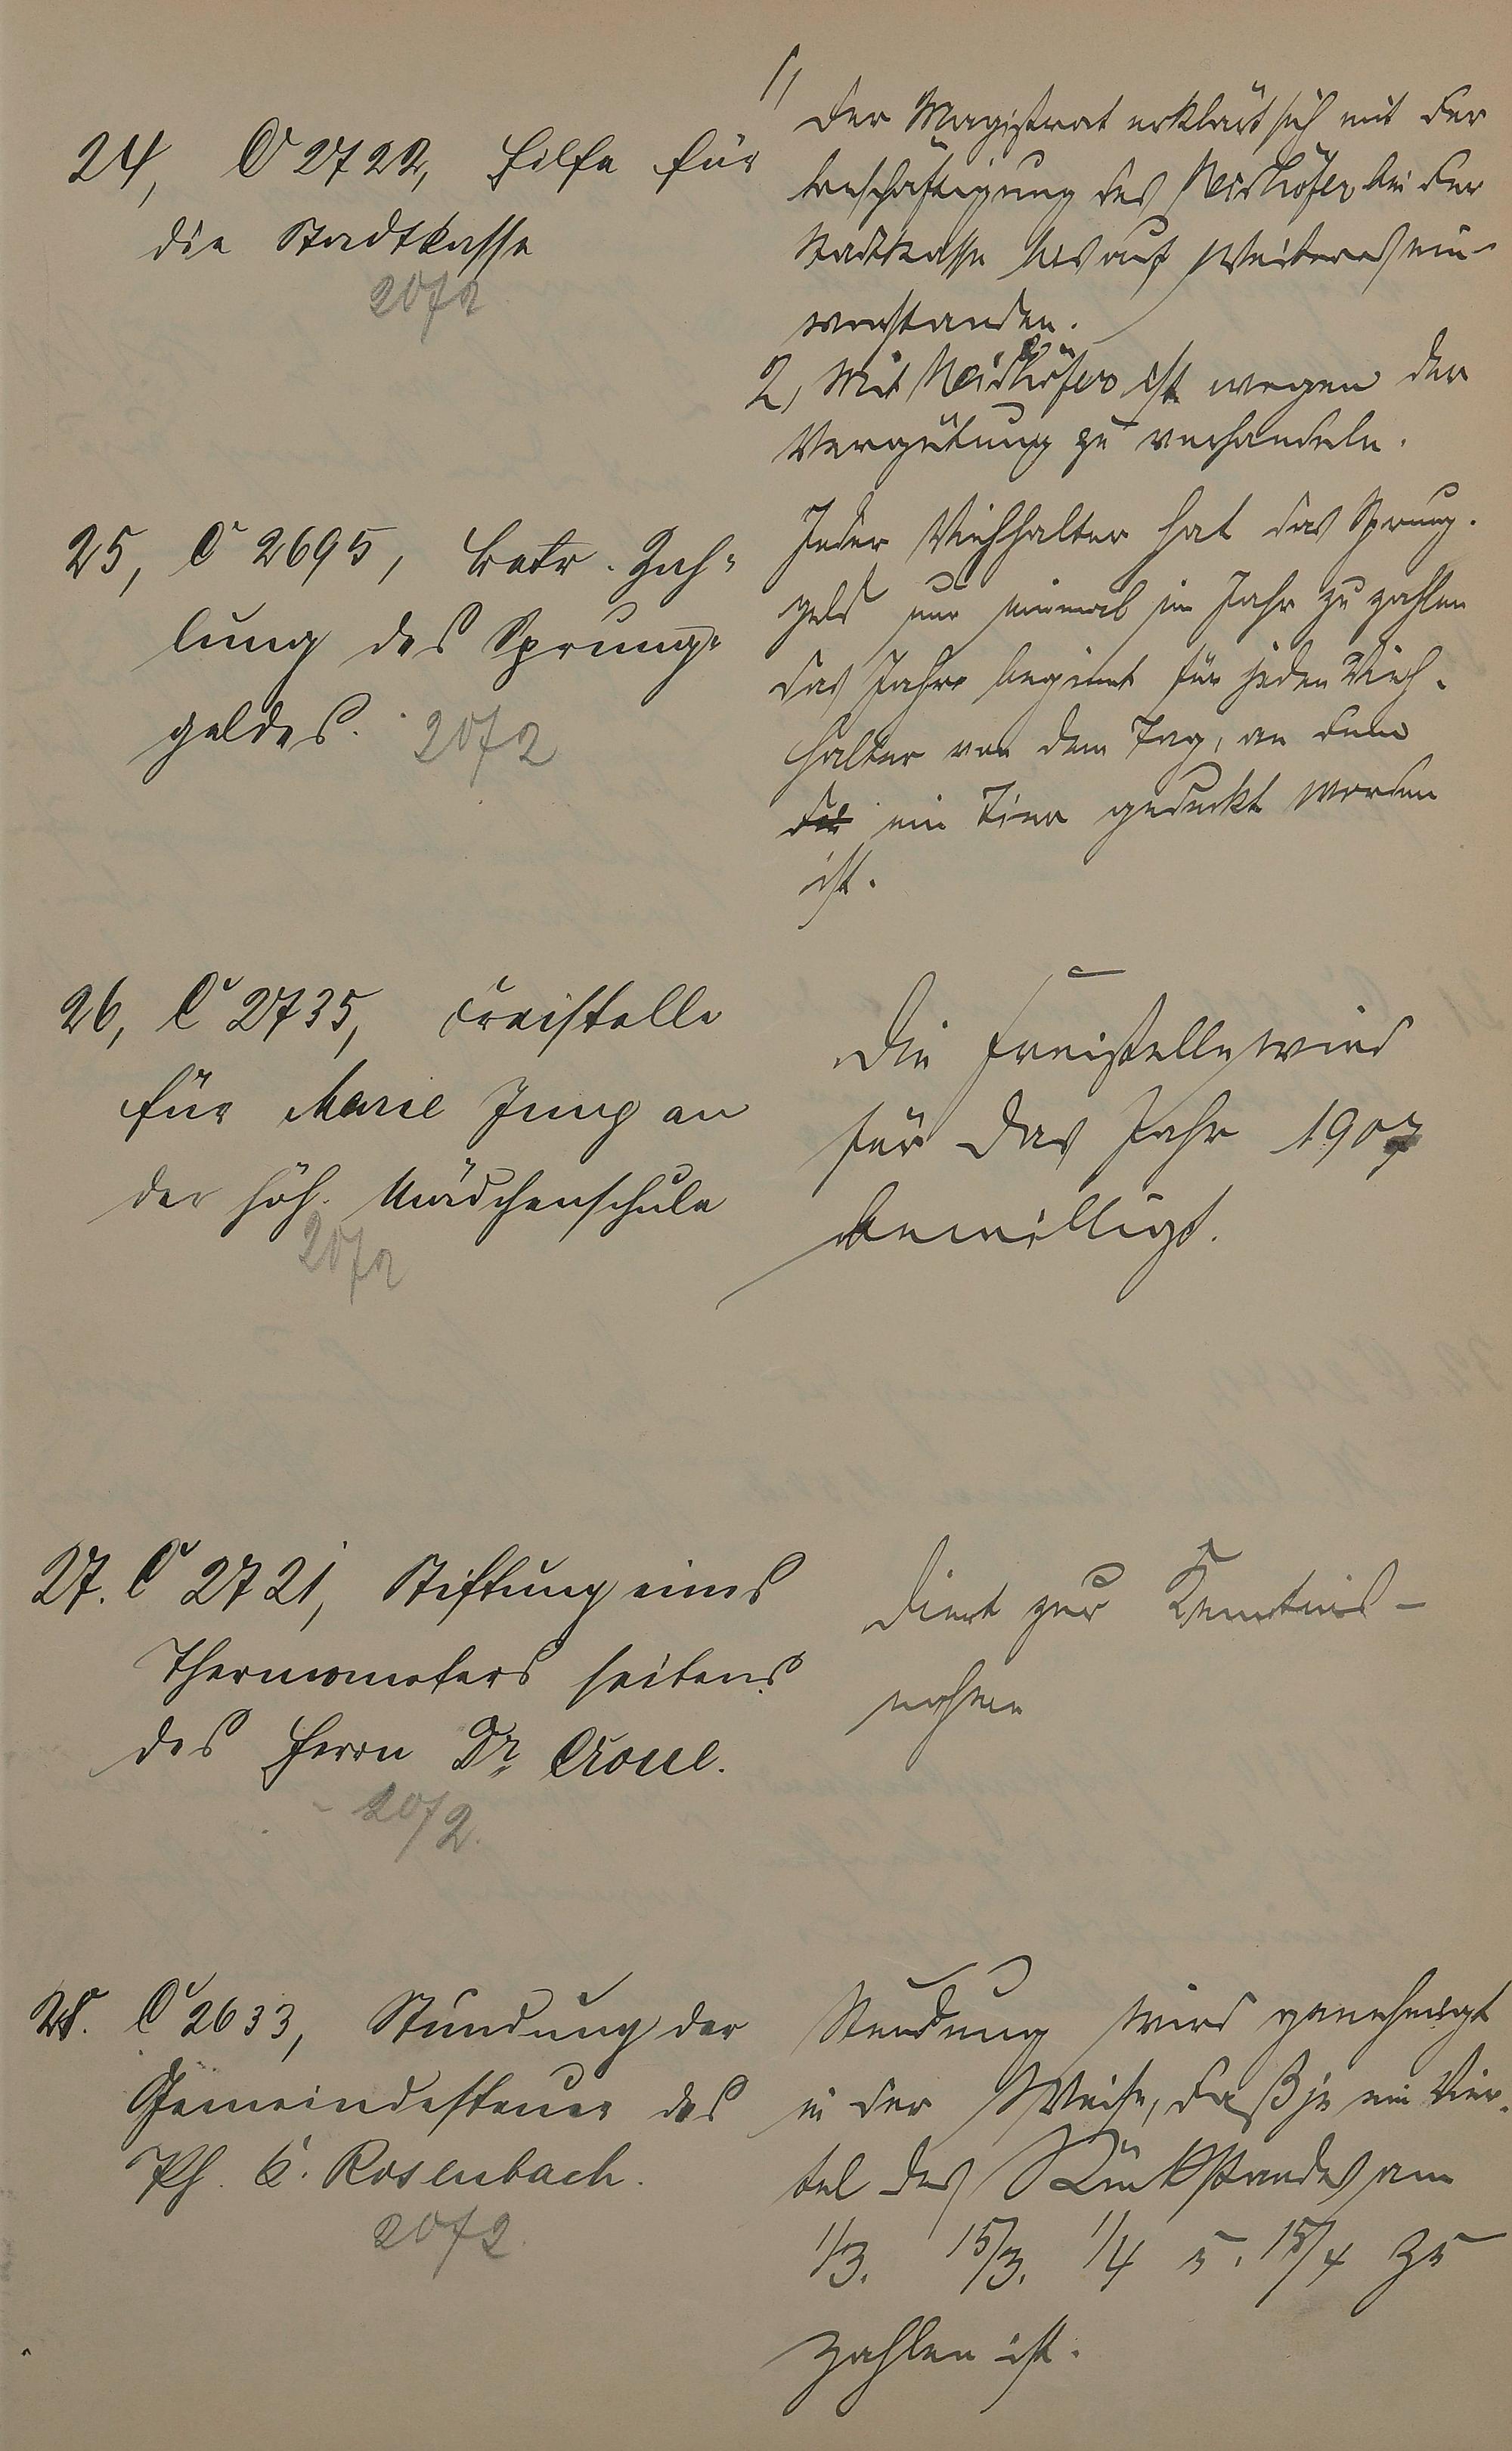 24, C 2722, Hilfe für
die Stadtkasse
20/2
1,
Der Magistrat erklärt sich mit der
Beschäftigung des Neidhöfer bei der
Stadtkasse bis auf Weiteres ein-
verstanden.
2, Mit Neidhöfer ist wegen der
Vergütung zu verhandeln.
25, C 2695, betr. Zah-
lung des Sprung-
geldes.
20/2
Jeder Viehhalter hat das Sprung-
geld nur einmal im Jahr zu zahlen
das Jahr beginnt für jeden Vieh-
halter von dem Tag, an dem
ein Tier gedeckt worden
ist.
26, C 2735, Freistelle
für Marie Jung an
der höh. Mädchenschule
20/2
Die Freistelle wird
für das Jahr 1907
bewilligt.
27. C 2721, Stiftung eines
Thermometers seitens
des Herrn Dr. Crone.
20/2.
Dient zur Kenntnis-
nahme
28. C 2633, Stundung der
Gemeindesteuer des
Ph. C. Rosenbach.
20/2.
Stundung wird genehmigt
in der Weise, daß je ein Vier-
tel des Rückstandes am
1/3. 15/3. 1/4 u. 15/4 zu
zahlen ist.